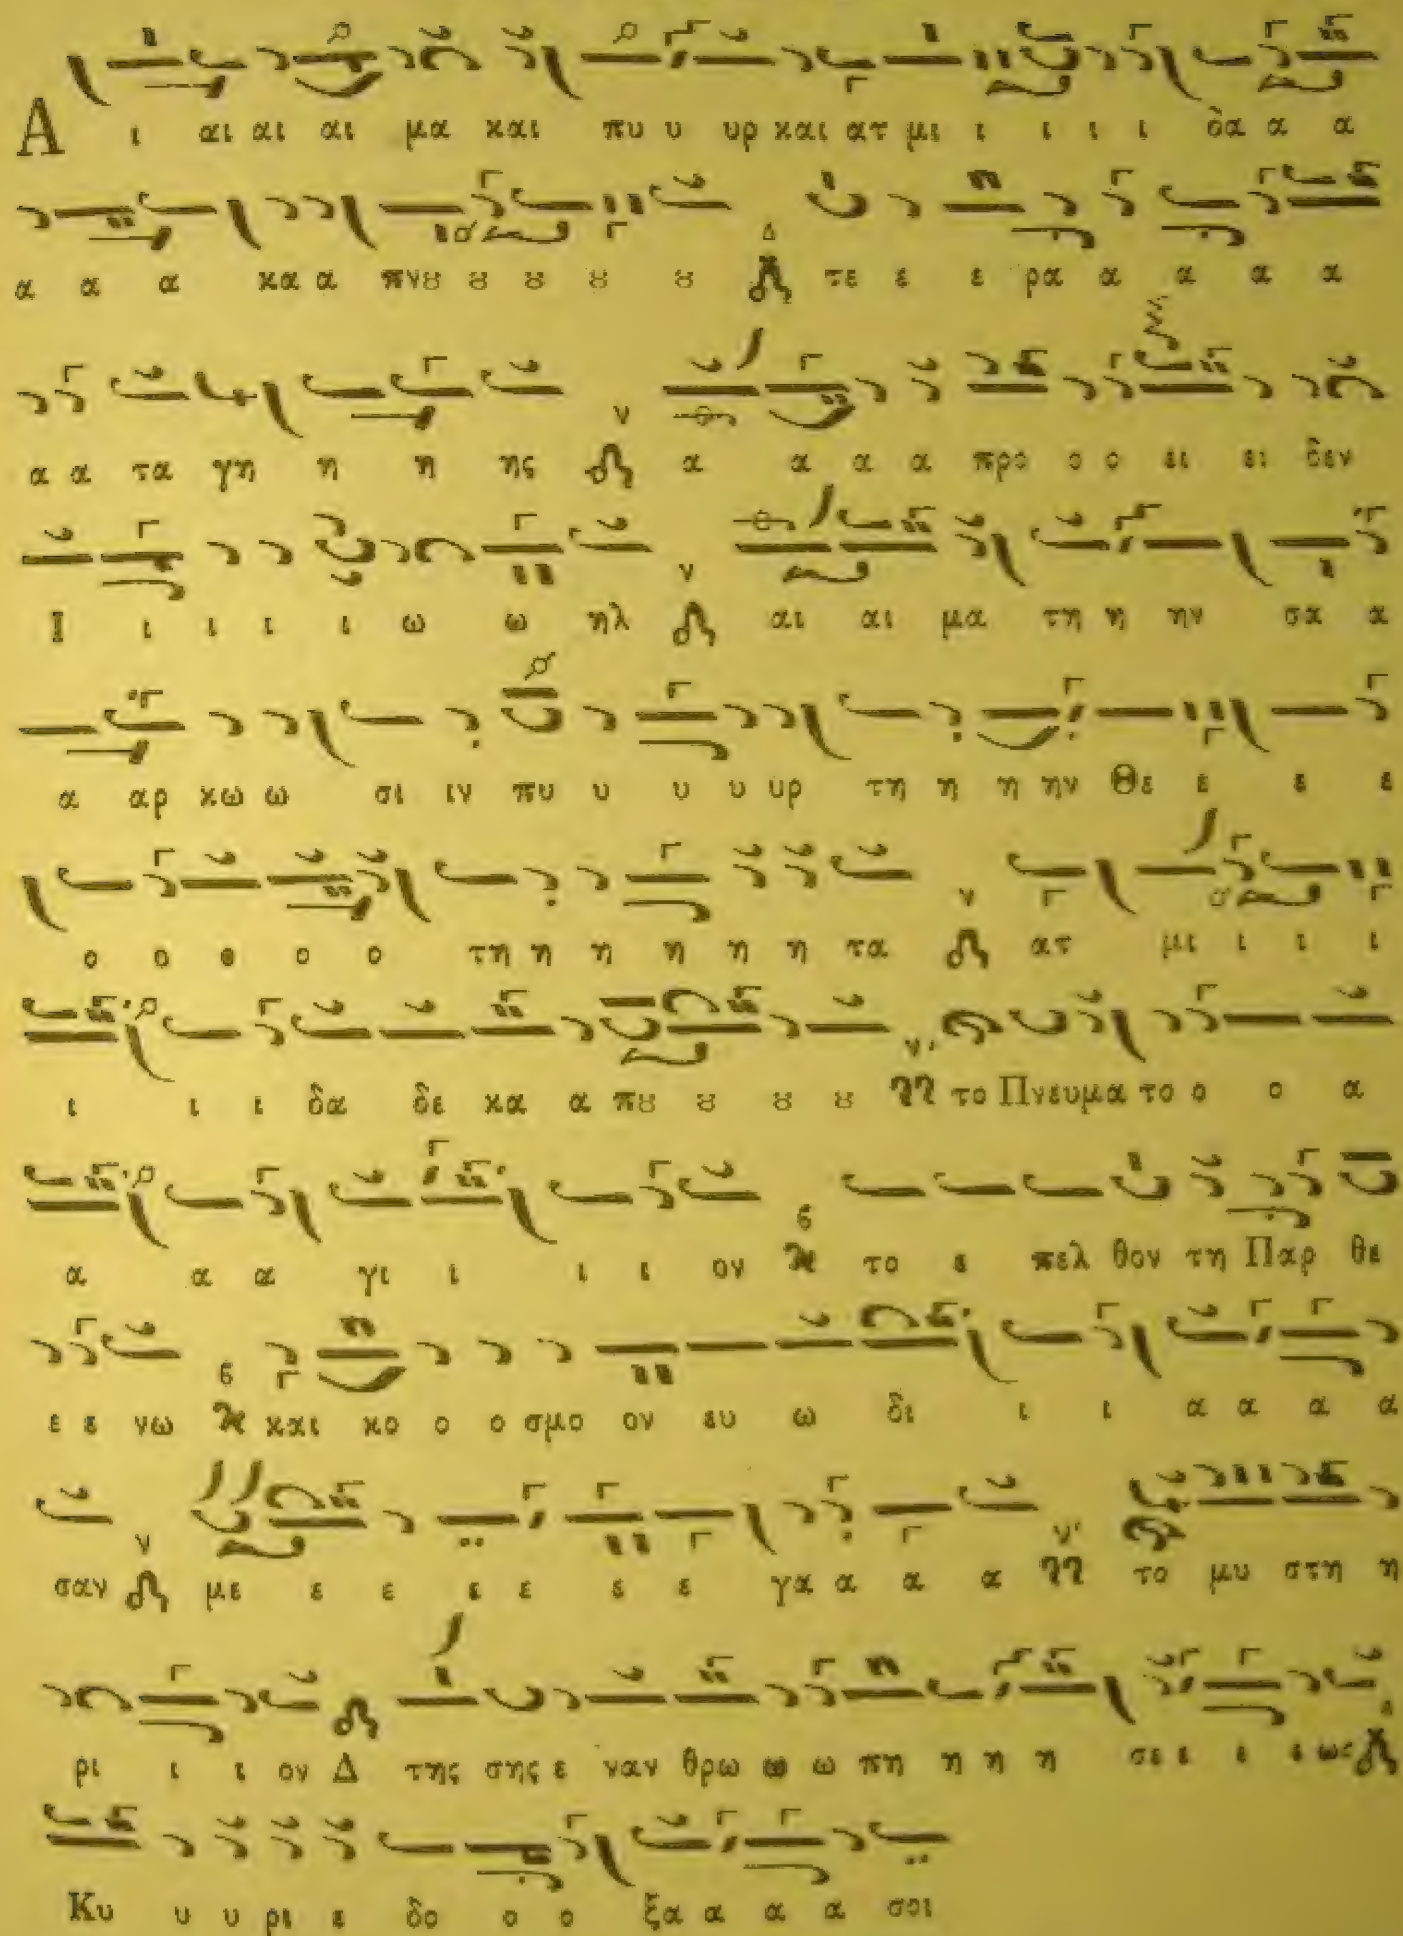 Α ι αι αι αι μα και πυ υ υρ και ατ μι ι ι ι ι δα α α
α α α κα α πνȣ ȣ ȣ ȣ ȣ Δ τε ε ε ρα α α α α
α α τα γη η η ης ν α α α α προ ο ο ει ει δεν
Ι ι ι ι ι ω ω ηλ ν αι αι μα τη η ην σα α
α αρ κω ω σι ιν πυ υ υ υ υρ τη η η ην Θε ε ε ε
ο ο ο ο ο τη η η η η η τα ν ατ μι ι ι ι
ι ι ι δα δε κα α πȣ ȣ ȣ ȣ ν' το Πνευμα το ο ο α
α α α γι ι ι ι ον ϐ το ε πελ θον τη Παρ θε
ε ε νω ϐ και κο ο ο σμο ον ευ ω δι ι ι α α α α
σαν ν με ε ε ε ε ε ε γα α α α ν' το μυ στη η
ρι ι ι ον Δ της σης ε ναν θρω ω ω πη η η η σε ε ε ε ως Δ
Κυ υ υ ρι ε δο ο ο ξα α α α σοι